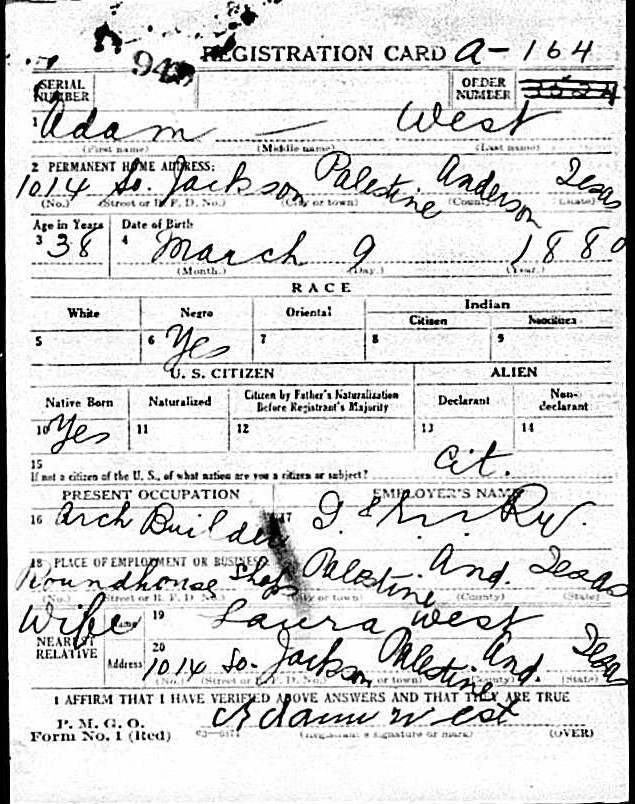 REGISTRATION CARD A-164
SERIAL NUMBER
ORDER NUMBER
1 Adam — West
(First name) (Middle name) (Last name)
2 PERMANENT HOME ADDRESS:
1014 So. Jackson Palestine Anderson Texas
(No.) (Street or R. F. D. No.) (City or town) (County) (State)
Age in Years Date of Birth
3 38 4 March 9 1880
(Month.) (Day.) (Year.)
RACE
White Negro Oriental Indian
Citizen Noncitizen
5 6 Yes 7 8 9
U. S. CITIZEN ALIEN
Native Born Naturalized Citizen by Father's Naturalization Before Registrant's Majority Declarant Non-declarant
10 Yes 11 12 13 14
15 Cit.
If not a citizen of the U. S., of what nation are you a citizen or subject?
PRESENT OCCUPATION EMPLOYER'S NAME
16 Arch Builder 17 Rw.
18 PLACE OF EMPLOYMENT OR BUSINESS:
Roundhouse Shops Palestine And. Texas
(No.) (Street or R. F. D. No.) (City or town) (County) (State)
Wife Name 19 Laura West
NEAREST RELATIVE
Address 20 1014 So. Jackson Palestine And Texas
(No.) (Street or R. F. D. No.) (City or town) (County) (State)
I AFFIRM THAT I HAVE VERIFIED ABOVE ANSWERS AND THAT THEY ARE TRUE
P. M. G. O.
Form No. 1 (Red) Adam West
(Registrant's signature or mark) (OVER)